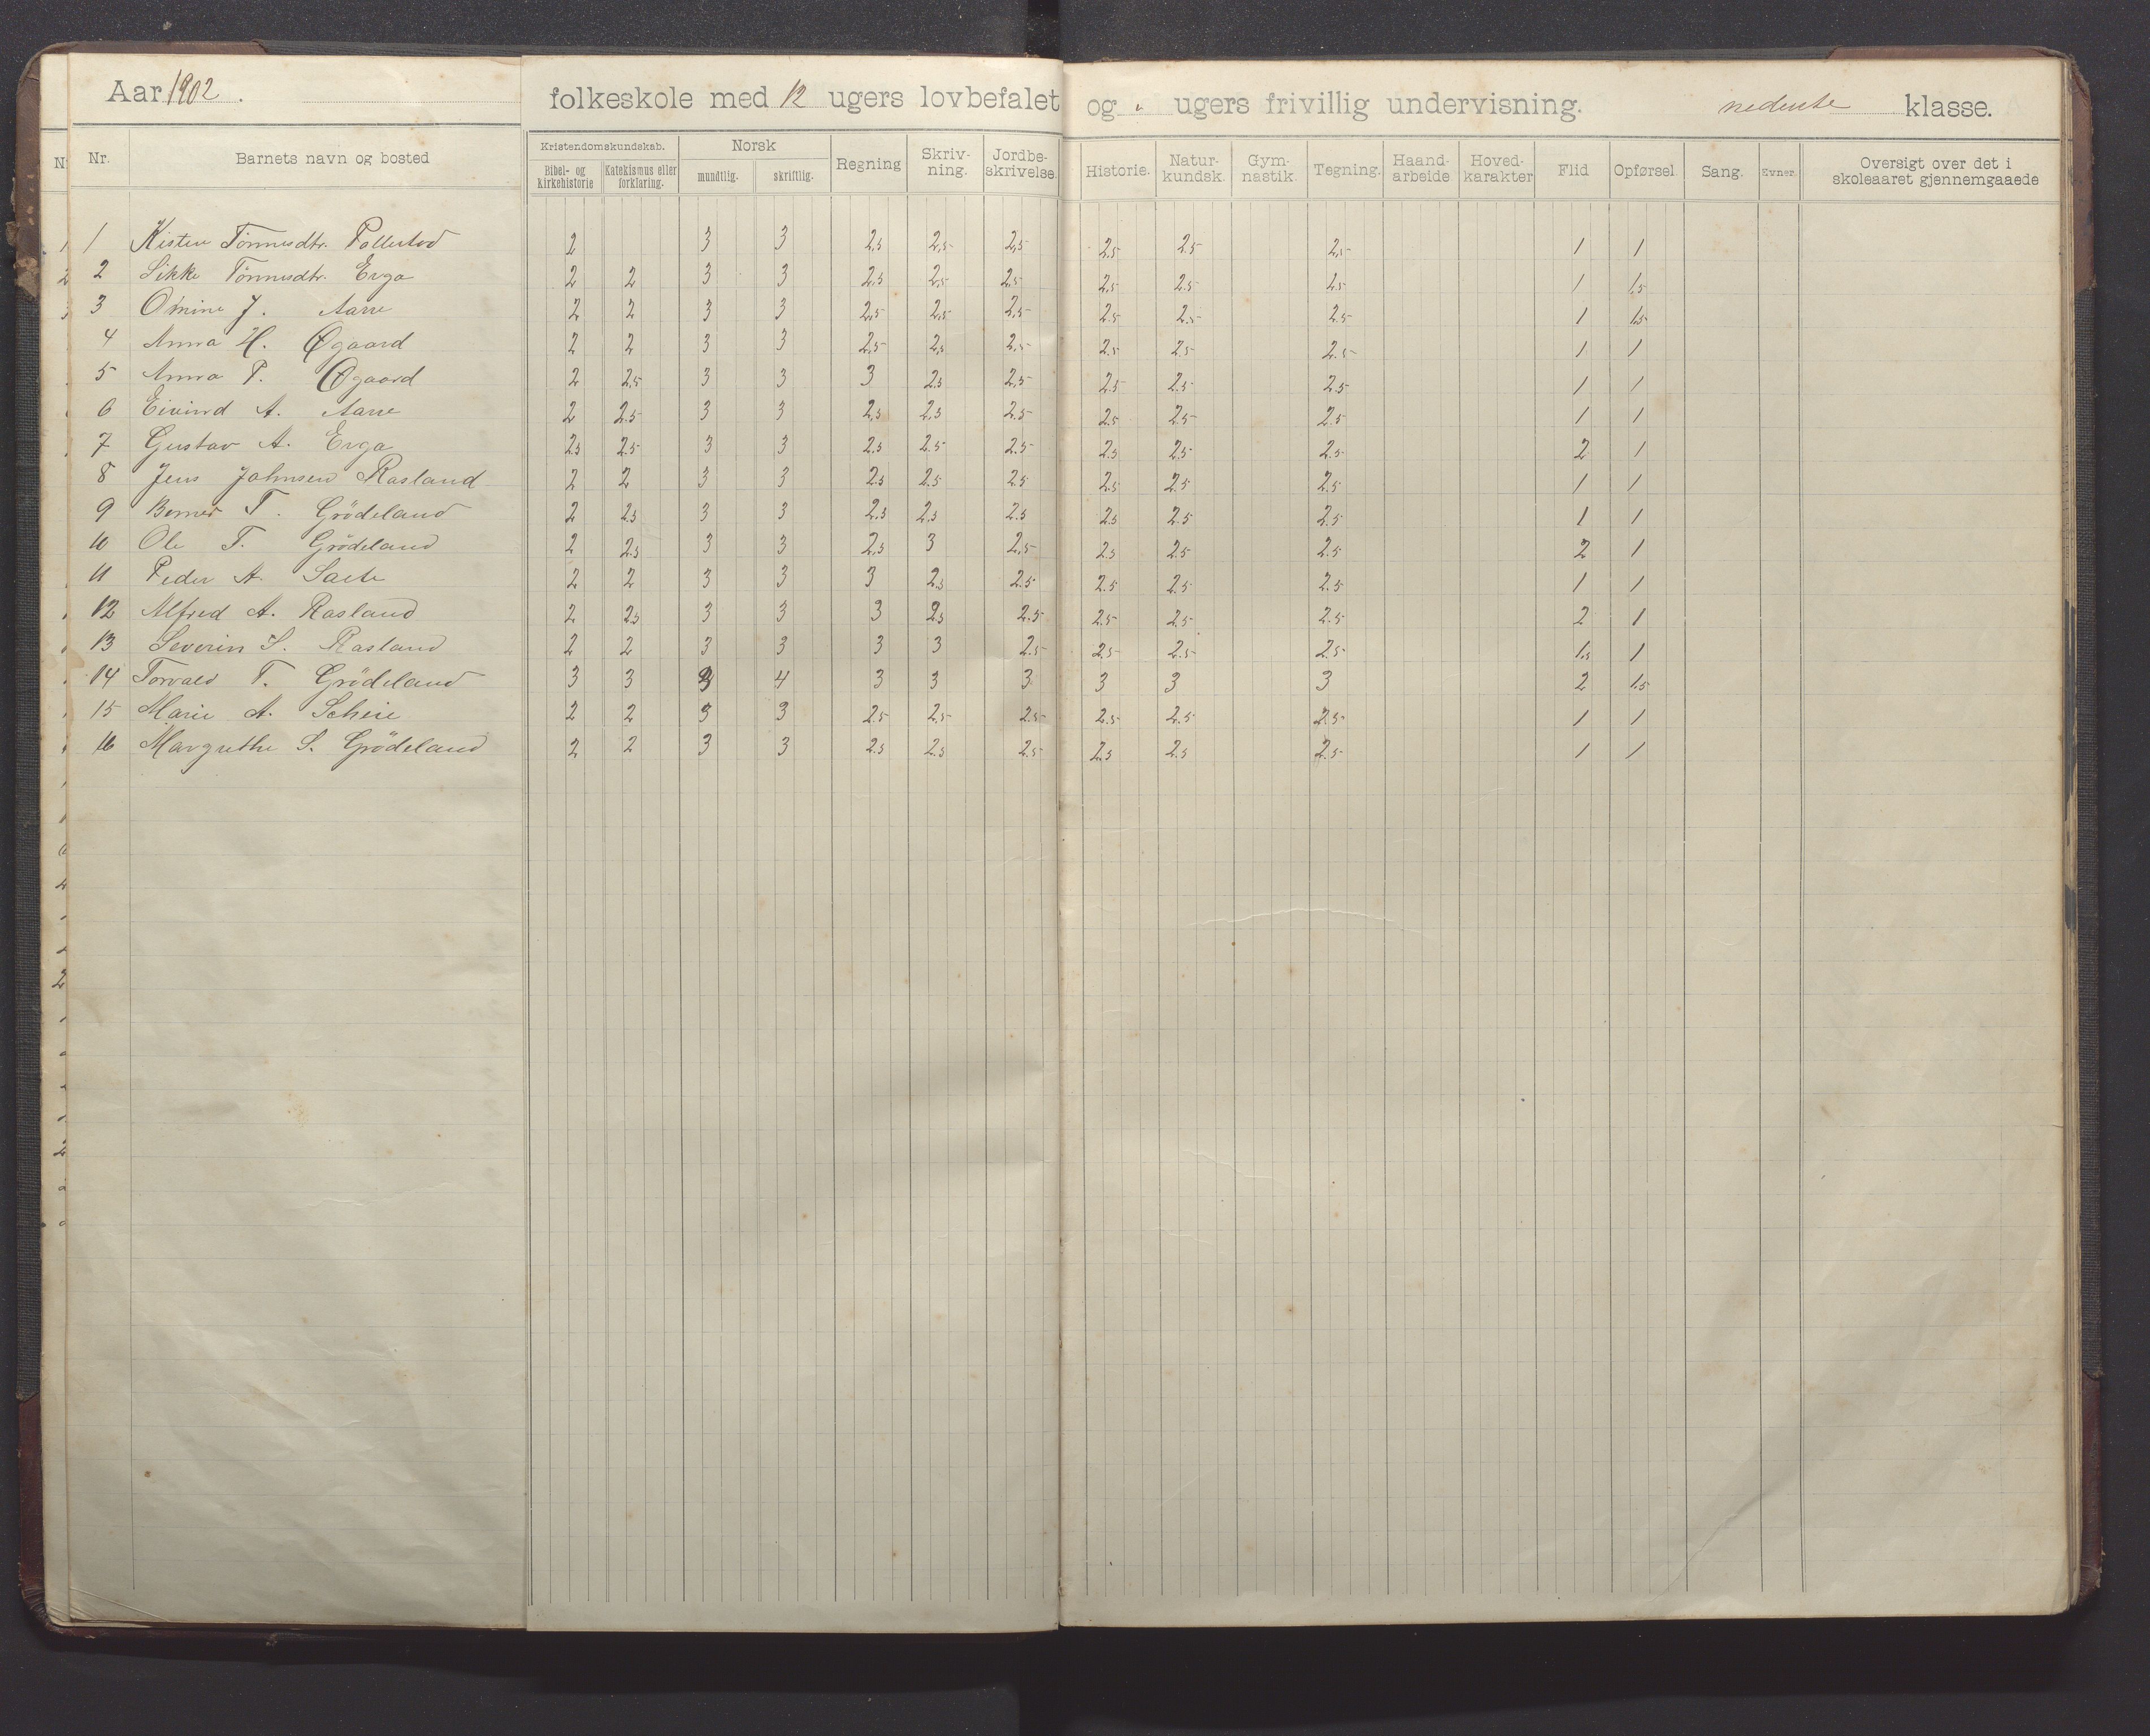 Aar 1902. folkeskole med 12 ugers lovbefalet og " ugers frivillig undervisning. nederste klasse.
Nr. Barnets navn og bosted Kristendomskundskab. Bibel- og kirkehistorie Katekismus eller forklaring. Norsk mundtlig. skriftlig. Regning Skrivning. Jordbeskrivelse. Historie. Naturkundsk. Gymnastik. Tegning. Haandarbeide Hovedkarakter Flid Opførsel Sang. Evner. Oversigt over det i skoleaaret gjennemgaaede
1 Kisten Tönnesdtr. Pollestad 2 3 3 2,5 2,5 2,5 2.5 2.5 2,5 1 1
2 Sikke Tönnesdtr. Erga 2 2 3 3 2,5 2,5 2,5 2,5 2.5 2.5 1 1,5
3 Omine J. Aarre 2 2 3 3 2,5 2,5 2,5 2.5 2.5 2.5 1 1,5
4 Anna H. Øgaard 2 2 3 3 2,5 2,5 2,5 2.5 2.5 2.5 1 1
5 Anna P. Øgaard 2 2,5 3 3 3 2,5 2,5 2.5 2.5 2.5 1 1
6 Eivind A. Aarre 2 2.5 3 3 2,5 2,5 2.5 2.5 2.5 2.5 1 1
7 Gustav A. Erga 2,5 2.5 3 3 2,5 2.5 2.5 2.5 2.5 2.5 2 1
8 Jens Johnsen Rosland 2 2 3 3 2.5 2.5 2.5 2.5 2.5 2.5 1 1
9 Berner T. Grödeland 2 2.5 3 3 2.5 2.5 2.5 2.5 2.5 2.5 1 1
10 Ole T. Grödeland 2 2.5 3 3 2,5 3 2,5 2.5 2.5 2.5 2 1
11 Peder A. Saele 2 2 3 3 3 2.5 2.5 2.5 2.5 2.5 1 1
12 Alfred A. Rosland 2 2.5 3 3 3 2.5 2.5 2.5 2.5 2.5 2 1
13 Severin S. Rosland 2 2 3 3 3 3 2.5 2.5 2.5 2.5 1,5 1
14 Torvald T. Grödeland 3 3 3 4 3 3 3 3 3 3 2 1.5
15 Marie A. Scheie 2 2 3 3 2.5 2.5 2.5 2.5 2.5 2.5 1 1
16 Margrethe S. Grödeland 2 2 3 3 2.5 2.5 2.5 2.5 2.5 2.5 1 1